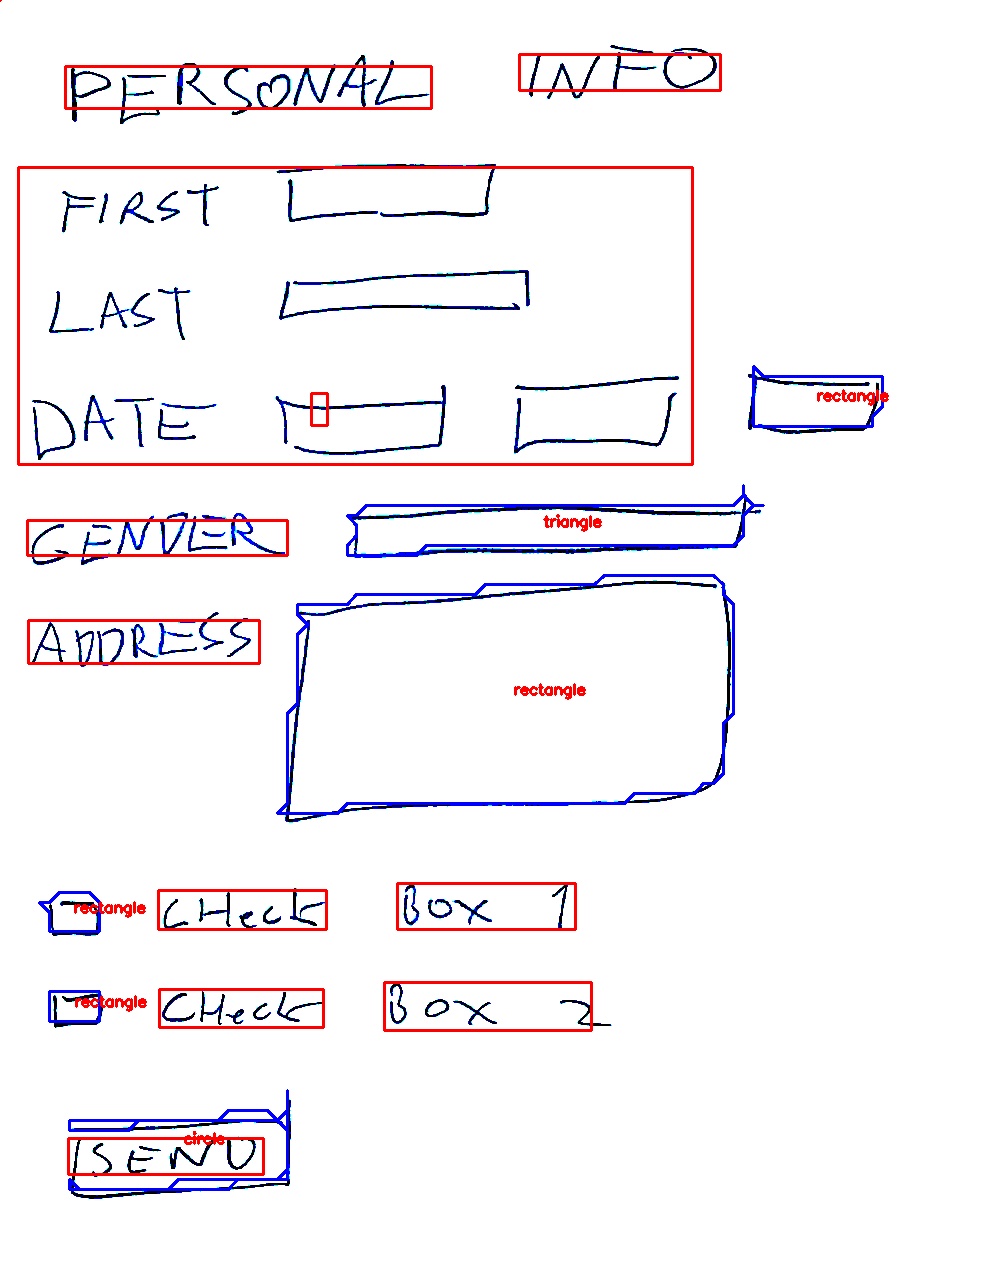 PERSONAL INFO
FIRST
LAST
DATE
rectangle
GENDER
triangle
ADDRESS
rectangle
rectangle CHecK BOX 1
rectangle CHecK BOX 2
circle
SEND